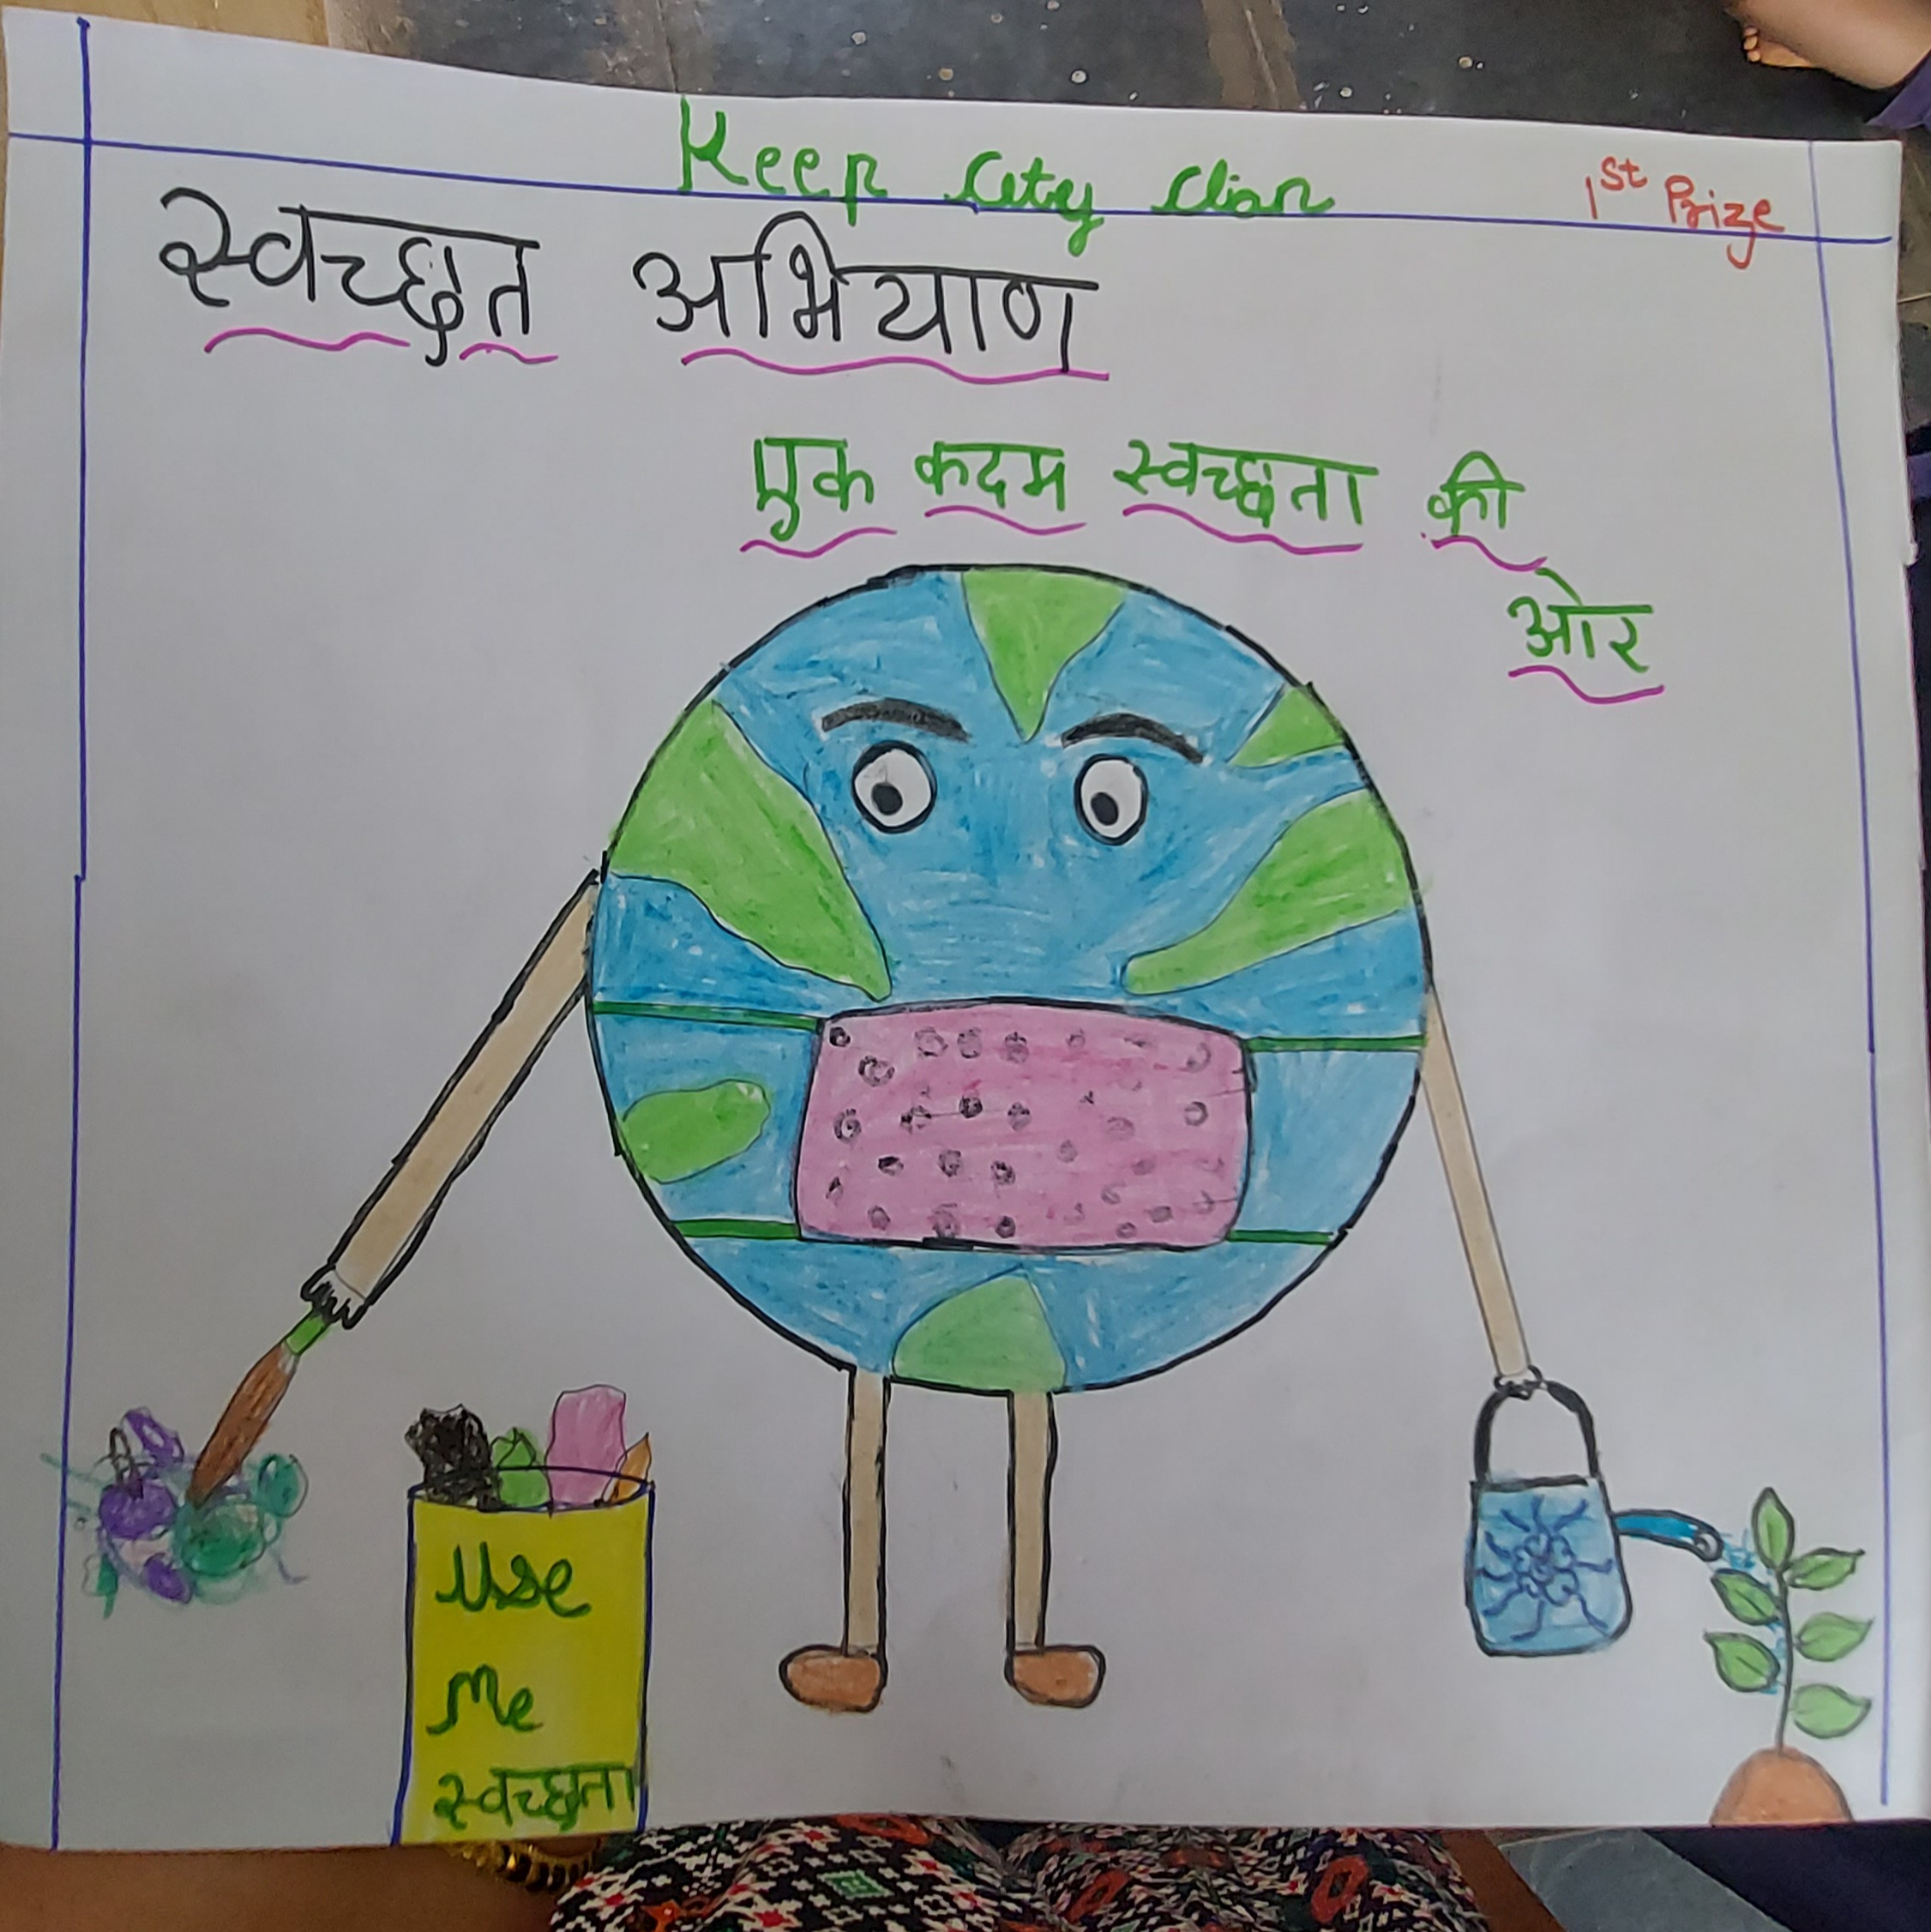 Keep City Clian
1st Prize
स्वच्छत अभियाण
एक कदम स्वच्छता की
ओर
Use
Me
स्वच्छता